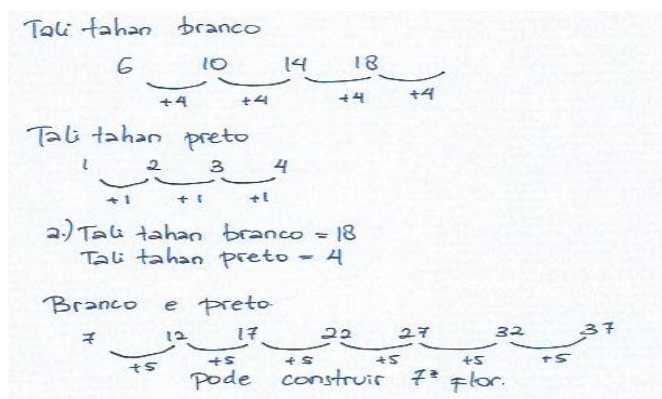 Tali tahan branco
6 10 14 18
+4 +4 +4 +4
Tali tahan preto
1 2 3 4
+1 +1 +1
a.) Tali tahan branco = 18
Tali tahan preto = 4
Branco e preto.
7 12 17 22 27 32 37
+5 +5 +5 +5 +5 +5
Pode construir 7ª flor.